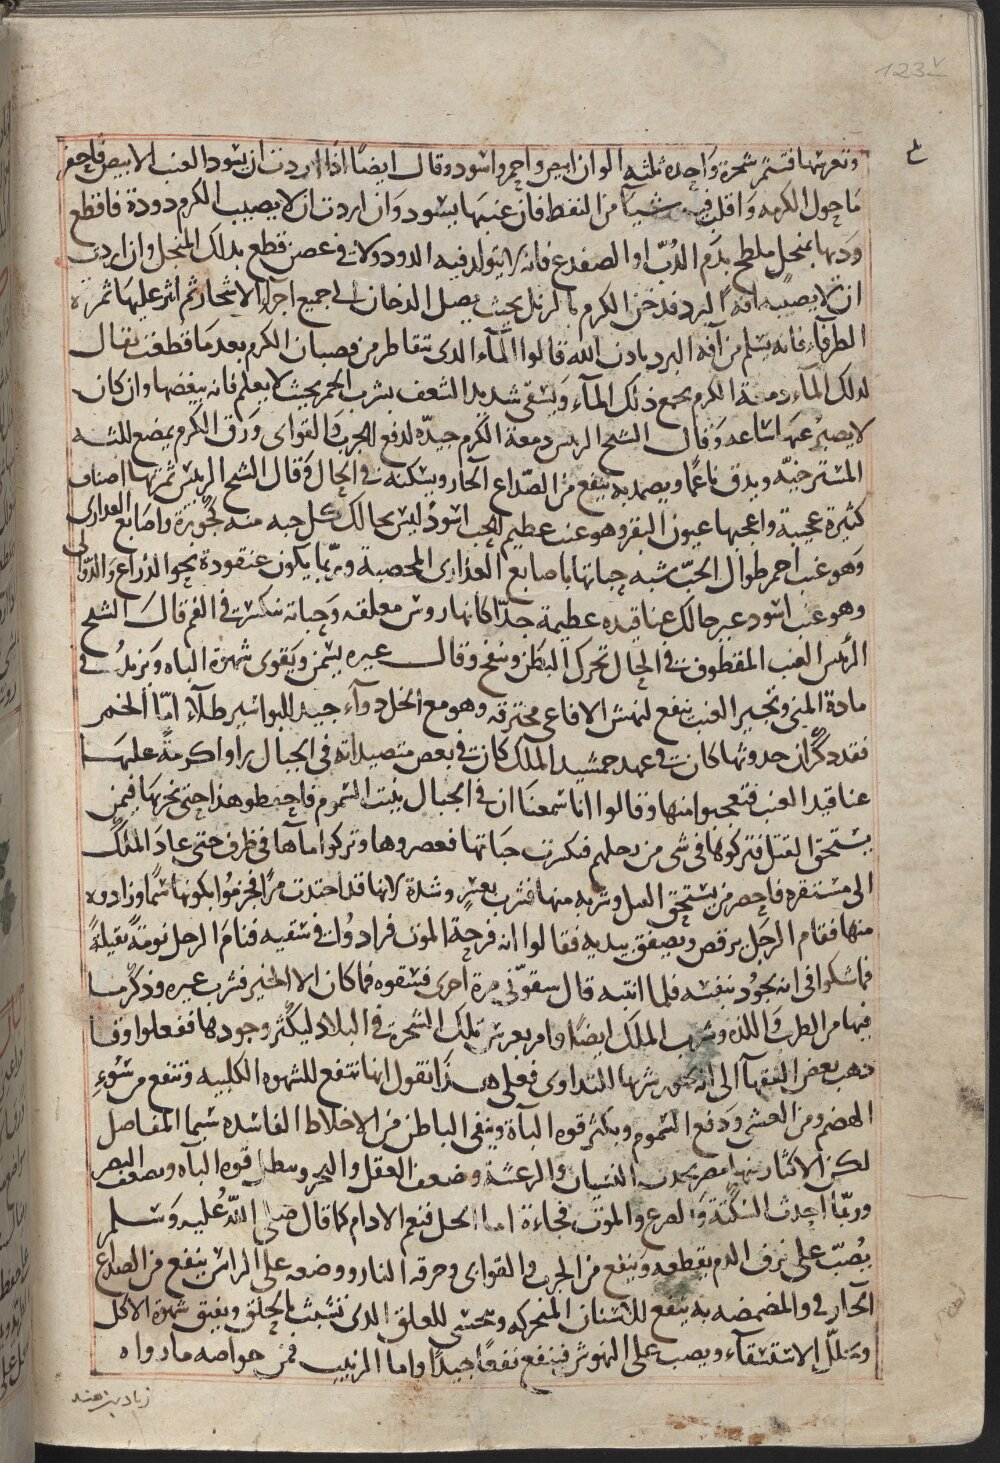 123v
وتعرشها فتثمر شجرة واحدة ثلثة الوان ابيض واحمر واسود وقال ايضا اذا اردت ان يسود العنب الابيض فاحفر
ما حول الكرمه واقلب فيه شيا من النفط فان عنبها يسود وان اردت ان لا يصيب الكرم دودة فاقطع
ودنها بمنجل ملطخ بدم الدب او الضفدع فانه لا يتولد فيه الدود ولا في غصن قطع بذلك المنجل وان اردت
ان لا يصيبه افة البرد فدخن الكرم بالزبل بحيث يصل الدخان الى جميع اجزاء الاشجار ثم انثر عليها ثمرة
الطرفاء فانه يسلم من آفة البرد باذن الله قالوا الماء الذي تتقاطر من قضبان الكرم بعد ما قطعت يقال
لذلك الماء دمعة الكرم يجمع ذلك الماء ويسقى شديد الشعف بشرب الخمر بحيث لا يعلم فانه يبغضها وان كان
لا يصبر عنها ساعة وقال الشيخ الرئيس دمعة الكرم جيدة لدفع الجرب والقوابي وورق الكرم يمضع للثة
المسترخية ويدق ناعما ويضمد به ينفع من الصداع الحار ويسكنه في الحال وقال الشيخ الرئيس ثمرتها اصناف
كثيرة عجيبة واعجبها عيون البقر وهو عنب عظيم الحب اسود ليس بحالك كل حبه منه كجوزة واصابع العذارى
وهو عنب احمر طوال الحب شبه حباتها باصابع العذارى المخضبة وربما يكون عنقوده نحو الذراع والدوالي
وهو عنب اسود غير حالك عناقيده عظيمة جدا كانها روس معلقه وحباته تتكسر في الفم قال الشيخ
الرئيس العنب المقطوف في الحال تحرك البطن وتنفخ وقال غيره يسمن ويقوى شهوة الباه ويزيد في
مادة المني وتجير العنب ينفع لنهش الافاعى محترقه وهو مع الخل دواء جيد للبواسير طلاء اما الخمر
فقد ذكر ان حدوثها كان في عهد جمشيد الملك كان في بعض متصيداته في الجبال راوا كرمة عليها
عناقيد العنب فتعجبوا منها وقالوا انا سمعنا ان في الجبال ينبت السموم فاحفظوا هذا حتى نجربها فيمن
يستحق القتل فتركوها في شى من رحلهم فتكسرت حباتها فعصروها وتركوا ماءها في ظرف حتى عاد الملك
الى مستقره فاحضر من يستحق القتل وشربه منها فشرب بعسر وشدة لانها قد اخذت مرا فجزموا بكونها سما وزادوه
منها فقام الرجل يرقص ويصفق بيديه فقالوا انه فرحة الموت فزادوا في سقيه فنام الرجل نومة ثقيلة
فما شكوا في انه يجود بنفسه فلما انتبه قال سقوني مرة اخرى فسقوه فما كان الا الخير فشرب غيره وذكر ما
فيها من الطرب واللذه وشرب الملك ايضا وامر بغرس تلك الشجرة في البلاد ليكثر وجودها ففعلوا وقد
ذهب بعض الفقهاء الى انه يجوز شربها للتداوى فعلى هذا نقول انها تنفع للشهوه الكلبيه وتنفع من سوء
الهضم ومن الغشى ودفع السموم ويكثر قوه الباة وينقى الباطن من الاخلاط الفاسده سيما المفاصل
لكن الاكثار منها مضر يحدث النسيان والرعشة وضعف العقل والبخر ويبطل قوه الباه ويضعف البصر
وربما احدث السكتة والصرع والموت فجاءة اما الخل فنعم الادام كما قال صلى الله عليه وسلم
يصب على نزف الدم يقطعه وينفع من الجرب والقوابى وحرقه النار ووضعه على الراس ينفع من الصداع
الحار والمضمضه به ينفع للاسنان المتحركه وتحسى للعلق الذى تتشبث بالحلق ويفيق شهوة الاكل
ويحلل الاستسقاء ويصب على النهوش فينفع نفعا جيدا واما الزبيب فمن خواصه ما رواه
زياد بن هند